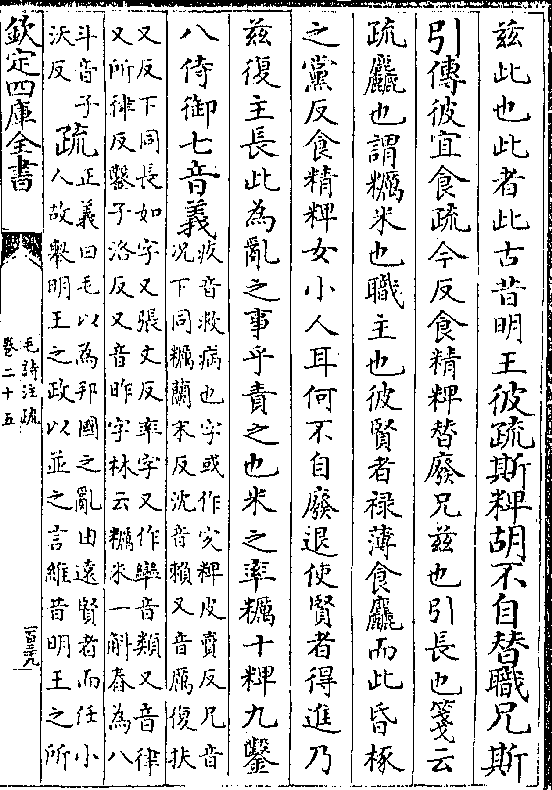 兹此也此者此古昔明王彼疏斯粺胡不自替職兄斯
引傳彼宜食疏今反食精粺替廢兄兹也引長也箋云
疏麤也謂糲米也職主也彼賢者禄薄食麤而此昏椓
之黨反食精粺女小人耳何不自廢退使賢者得進乃
兹復主長此為亂之事乎責之也米之率糲十粺九鑿
八侍御七音義
疚音救病也字或作㝌粺皮賣反兄音
况下同糲蘭末反沈音賴又音厲復扶
又反下同長如字又張丈反率字又作𦆽音類又音律
又所律反鑿子洛反又音昨字林云糲米一斛舂為八
斗音子
沃反
疏
正義曰毛以為邦國之亂由遠賢者而任小
人故舉明王之政以並之言維昔明王之所
欽定四庫全書
毛詩注疏
卷二十五